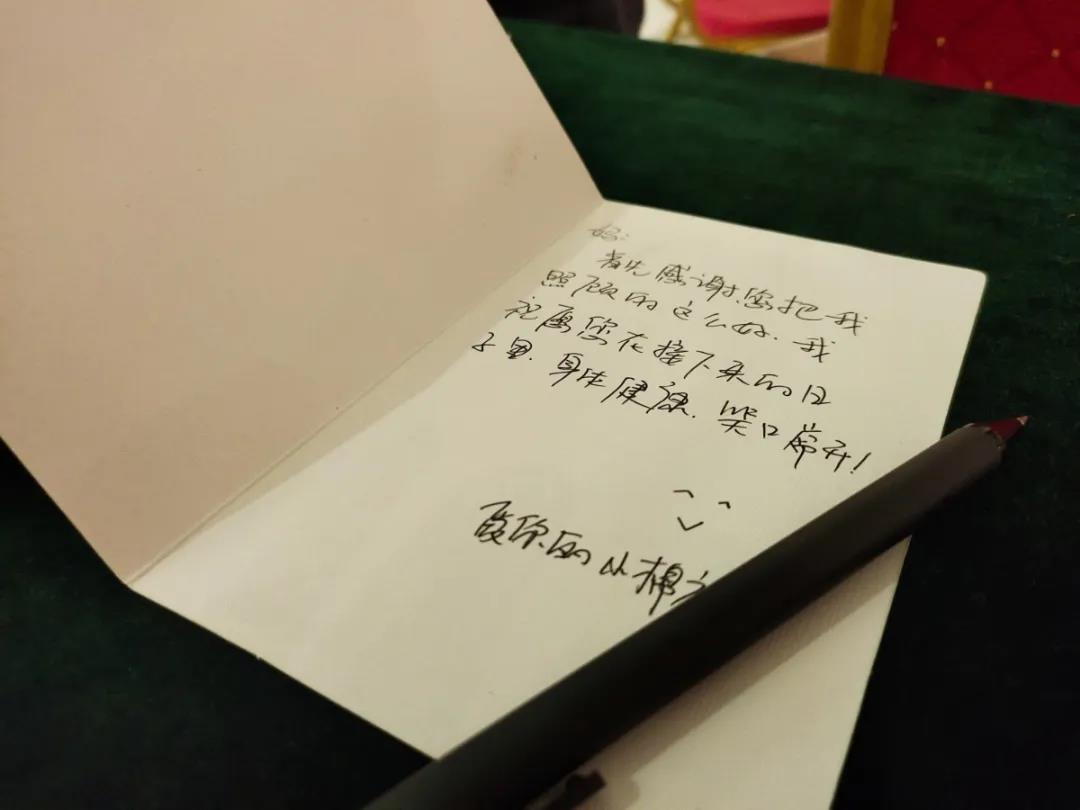 妈:
首先感谢您把我
照顾的这么好.我
祝愿您在接下来的日
子里.身体健康.笑口常开!
爱你的小棉